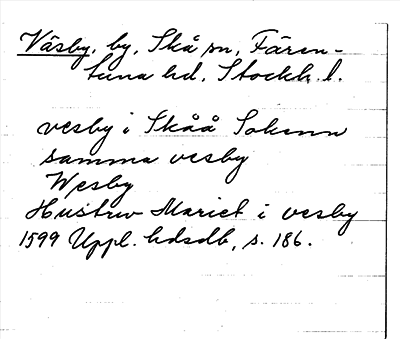 Väsby, by, Skå sn, Fären-
tuna hd, Stockh. l.
vesby i Skåå Sokenn
samma vesby
Wesby
Hustrw Mariet i vesby
1599 Uppl. hdsdb, s. 186.